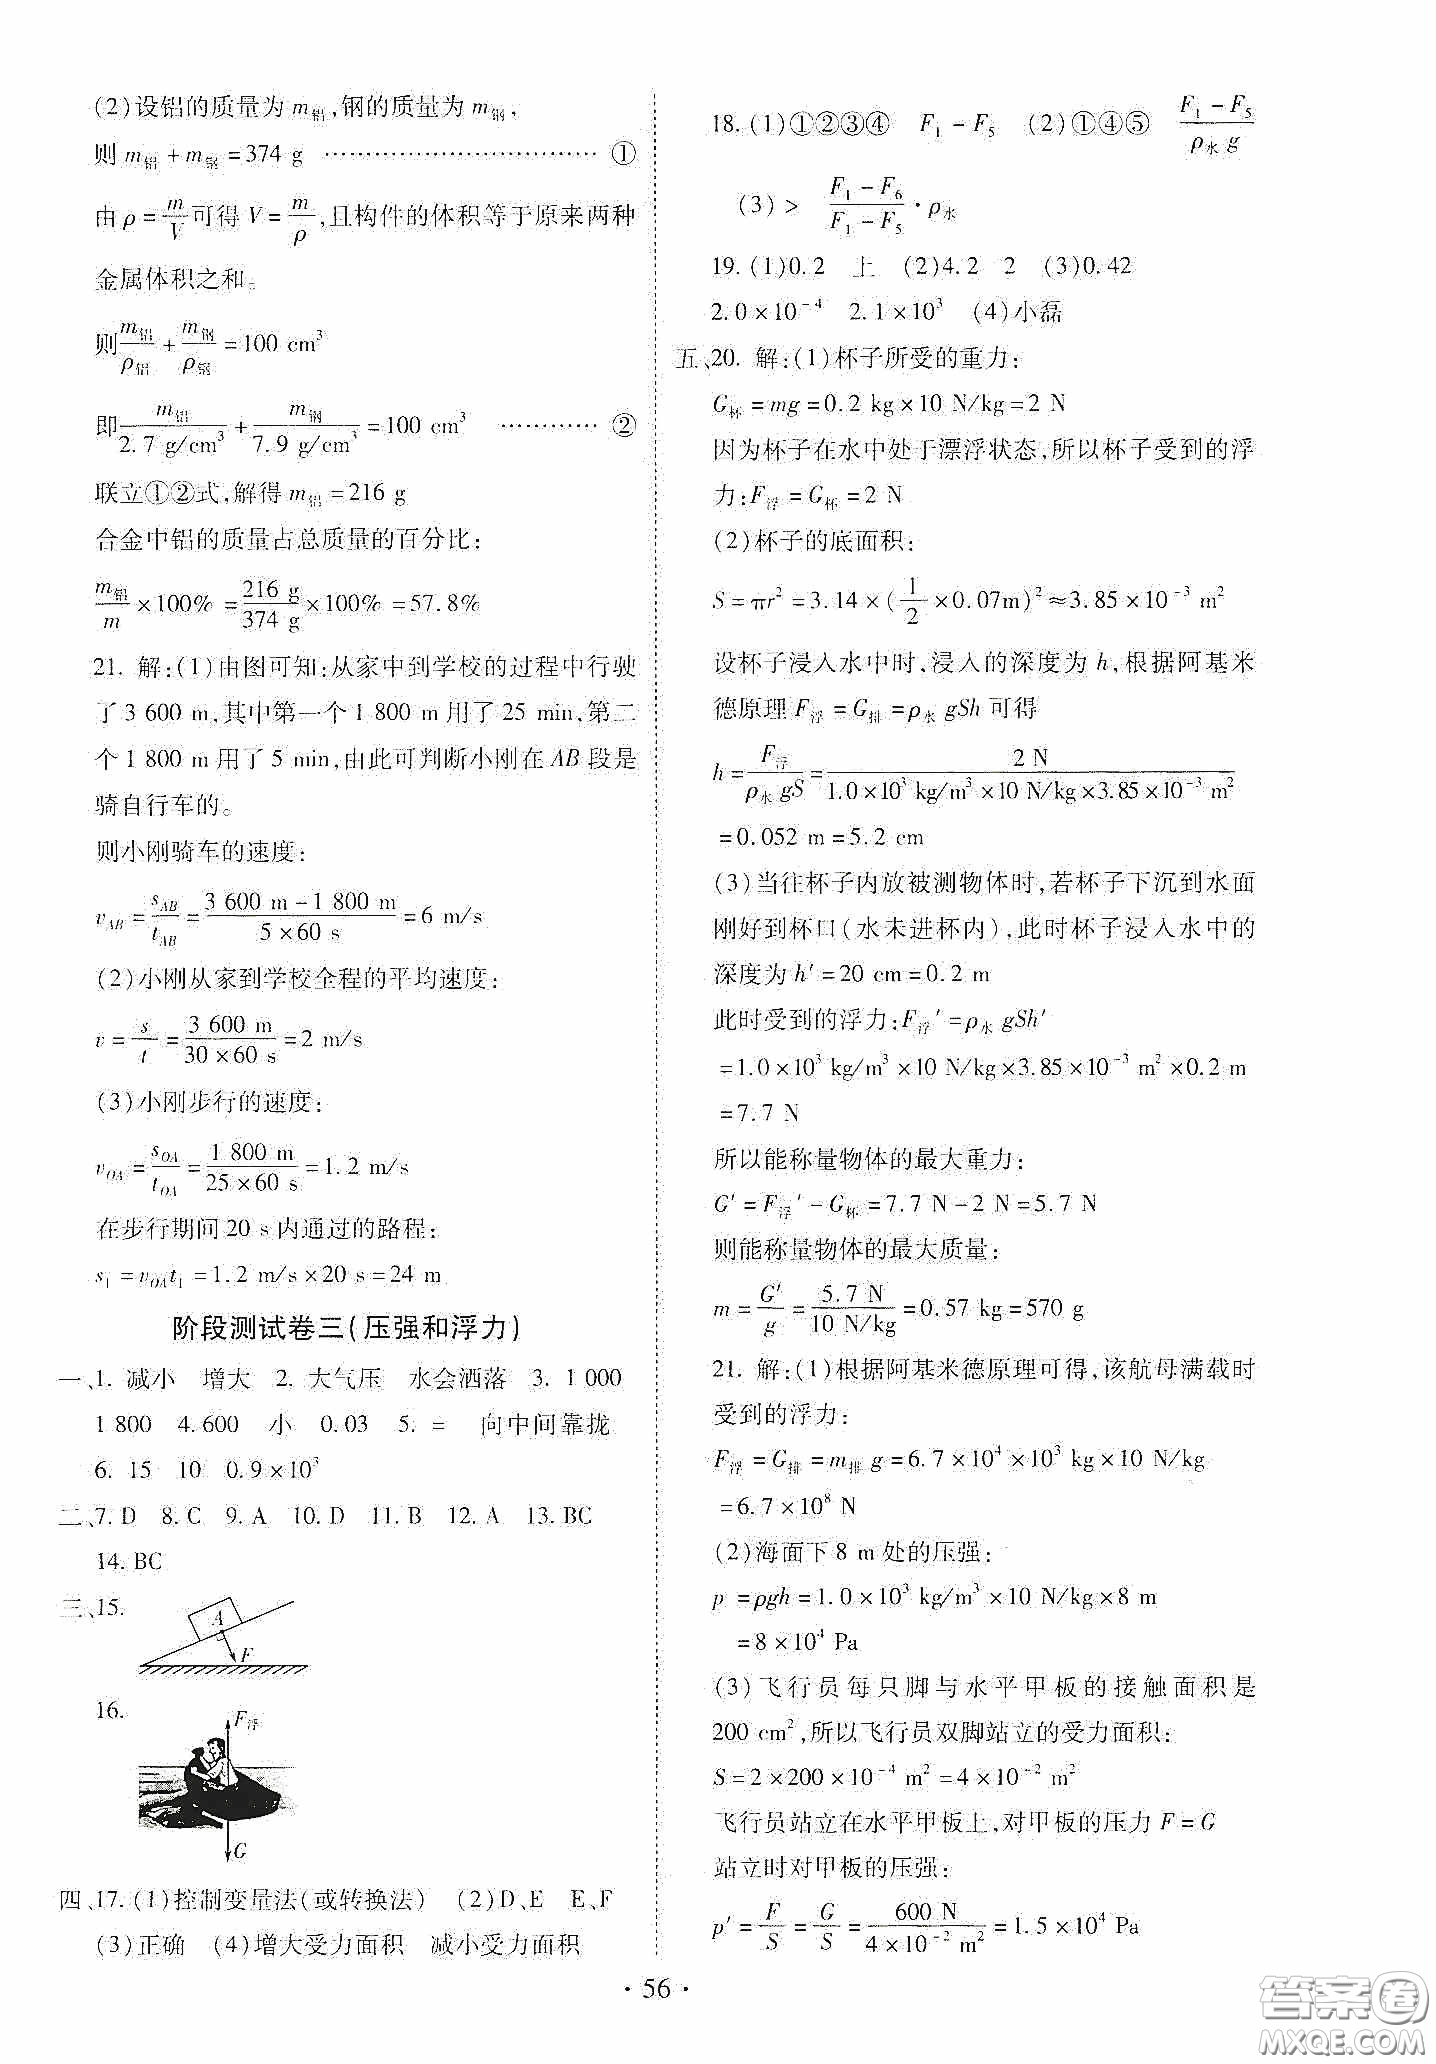 (2)设铝的质量为 m铝,钢的质量为 m钢,
则 m铝 + m钢 = 374 g ………………………… ①
由 ρ = m/V 可得 V = m/ρ,且构件的体积等于原来两种
金属体积之和。
则 m铝/ρ铝 + m钢/ρ钢 = 100 cm³
即 m铝/2.7 g/cm³ + m钢/7.9 g/cm³ = 100 cm³ ………… ②
联立①②式,解得 m铝 = 216 g
合金中铝的质量占总质量的百分比:
m铝/m × 100% = 216 g/374 g × 100% = 57.8%
21. 解:(1)由图可知:从家中到学校的过程中行驶
了 3 600 m,其中第一个 1 800 m 用了 25 min,第二
个 1 800 m 用了 5 min,由此可判断小刚在 AB 段是
骑自行车的。
则小刚骑车的速度:
v_AB = s_AB/t_AB = (3 600 m - 1 800 m)/(5 × 60 s) = 6 m/s
(2)小刚从家到学校全程的平均速度:
v = s/t = 3 600 m/(30 × 60 s) = 2 m/s
(3)小刚步行的速度:
v_OA = s_OA/t_OA = 1 800 m/(25 × 60 s) = 1.2 m/s
在步行期间 20 s 内通过的路程:
s₁ = v_OA t₁ = 1.2 m/s × 20 s = 24 m
阶段测试卷三(压强和浮力)
一、1. 减小 增大 2. 大气压 水会洒落 3. 1 000
1 800 4. 600 小 0.03 5. = 向中间靠拢
6. 15 10 0.9 × 10³
二、7. D 8. C 9. A 10. D 11. B 12. A 13. BC
14. BC
三、15.
A
F
16.
F浮
G
四、17. (1)控制变量法(或转换法) (2)D、E E、F
(3)正确 (4)增大受力面积 减小受力面积
18. (1)①②③④ F₁ - F₅ (2)①④⑤ (F₁ - F₅)/(ρ水 g)
(3) > (F₁ - F₆)/(F₁ - F₅) · ρ水
19. (1)0.2 上 (2)4.2 2 (3)0.42
2.0 × 10⁻⁴ 2.1 × 10³ (4)小磊
五、20. 解:(1)杯子所受的重力:
G杯 = mg = 0.2 kg × 10 N/kg = 2 N
因为杯子在水中处于漂浮状态,所以杯子受到的浮
力:F浮 = G杯 = 2 N
(2)杯子的底面积:
S = πr² = 3.14 × (1/2 × 0.07m)² ≈ 3.85 × 10⁻³ m²
设杯子浸入水中时,浸入的深度为 h,根据阿基米
德原理 F浮 = G排 = ρ水 gSh 可得
h = F浮/(ρ水 gS) = 2 N/(1.0 × 10³ kg/m³ × 10 N/kg × 3.85 × 10⁻³ m²)
= 0.052 m = 5.2 cm
(3)当往杯子内放被测物体时,若杯子下沉到水面
刚好到杯口(水未进杯内),此时杯子浸入水中的
深度为 h′ = 20 cm = 0.2 m
此时受到的浮力:F浮′ = ρ水 gSh′
= 1.0 × 10³ kg/m³ × 10 N/kg × 3.85 × 10⁻³ m² × 0.2 m
= 7.7 N
所以能称量物体的最大重力:
G′ = F浮′ - G杯 = 7.7 N - 2 N = 5.7 N
则能称量物体的最大质量:
m = G′/g = 5.7 N/10 N/kg = 0.57 kg = 570 g
21. 解:(1)根据阿基米德原理可得,该航母满载时
受到的浮力:
F浮 = G排 = m排 g = 6.7 × 10⁴ × 10³ kg × 10 N/kg
= 6.7 × 10⁸ N
(2)海面下 8 m 处的压强:
p = ρgh = 1.0 × 10³ kg/m³ × 10 N/kg × 8 m
= 8 × 10⁴ Pa
(3)飞行员每只脚与水平甲板的接触面积是
200 cm²,所以飞行员双脚站立的受力面积:
S = 2 × 200 × 10⁻⁴ m² = 4 × 10⁻² m²
飞行员站立在水平甲板上,对甲板的压力 F = G
站立时对甲板的压强:
p′ = F/S = G/S = 600 N/(4 × 10⁻² m²) = 1.5 × 10⁴ Pa
· 56 ·
答案卷
MXQE.COM